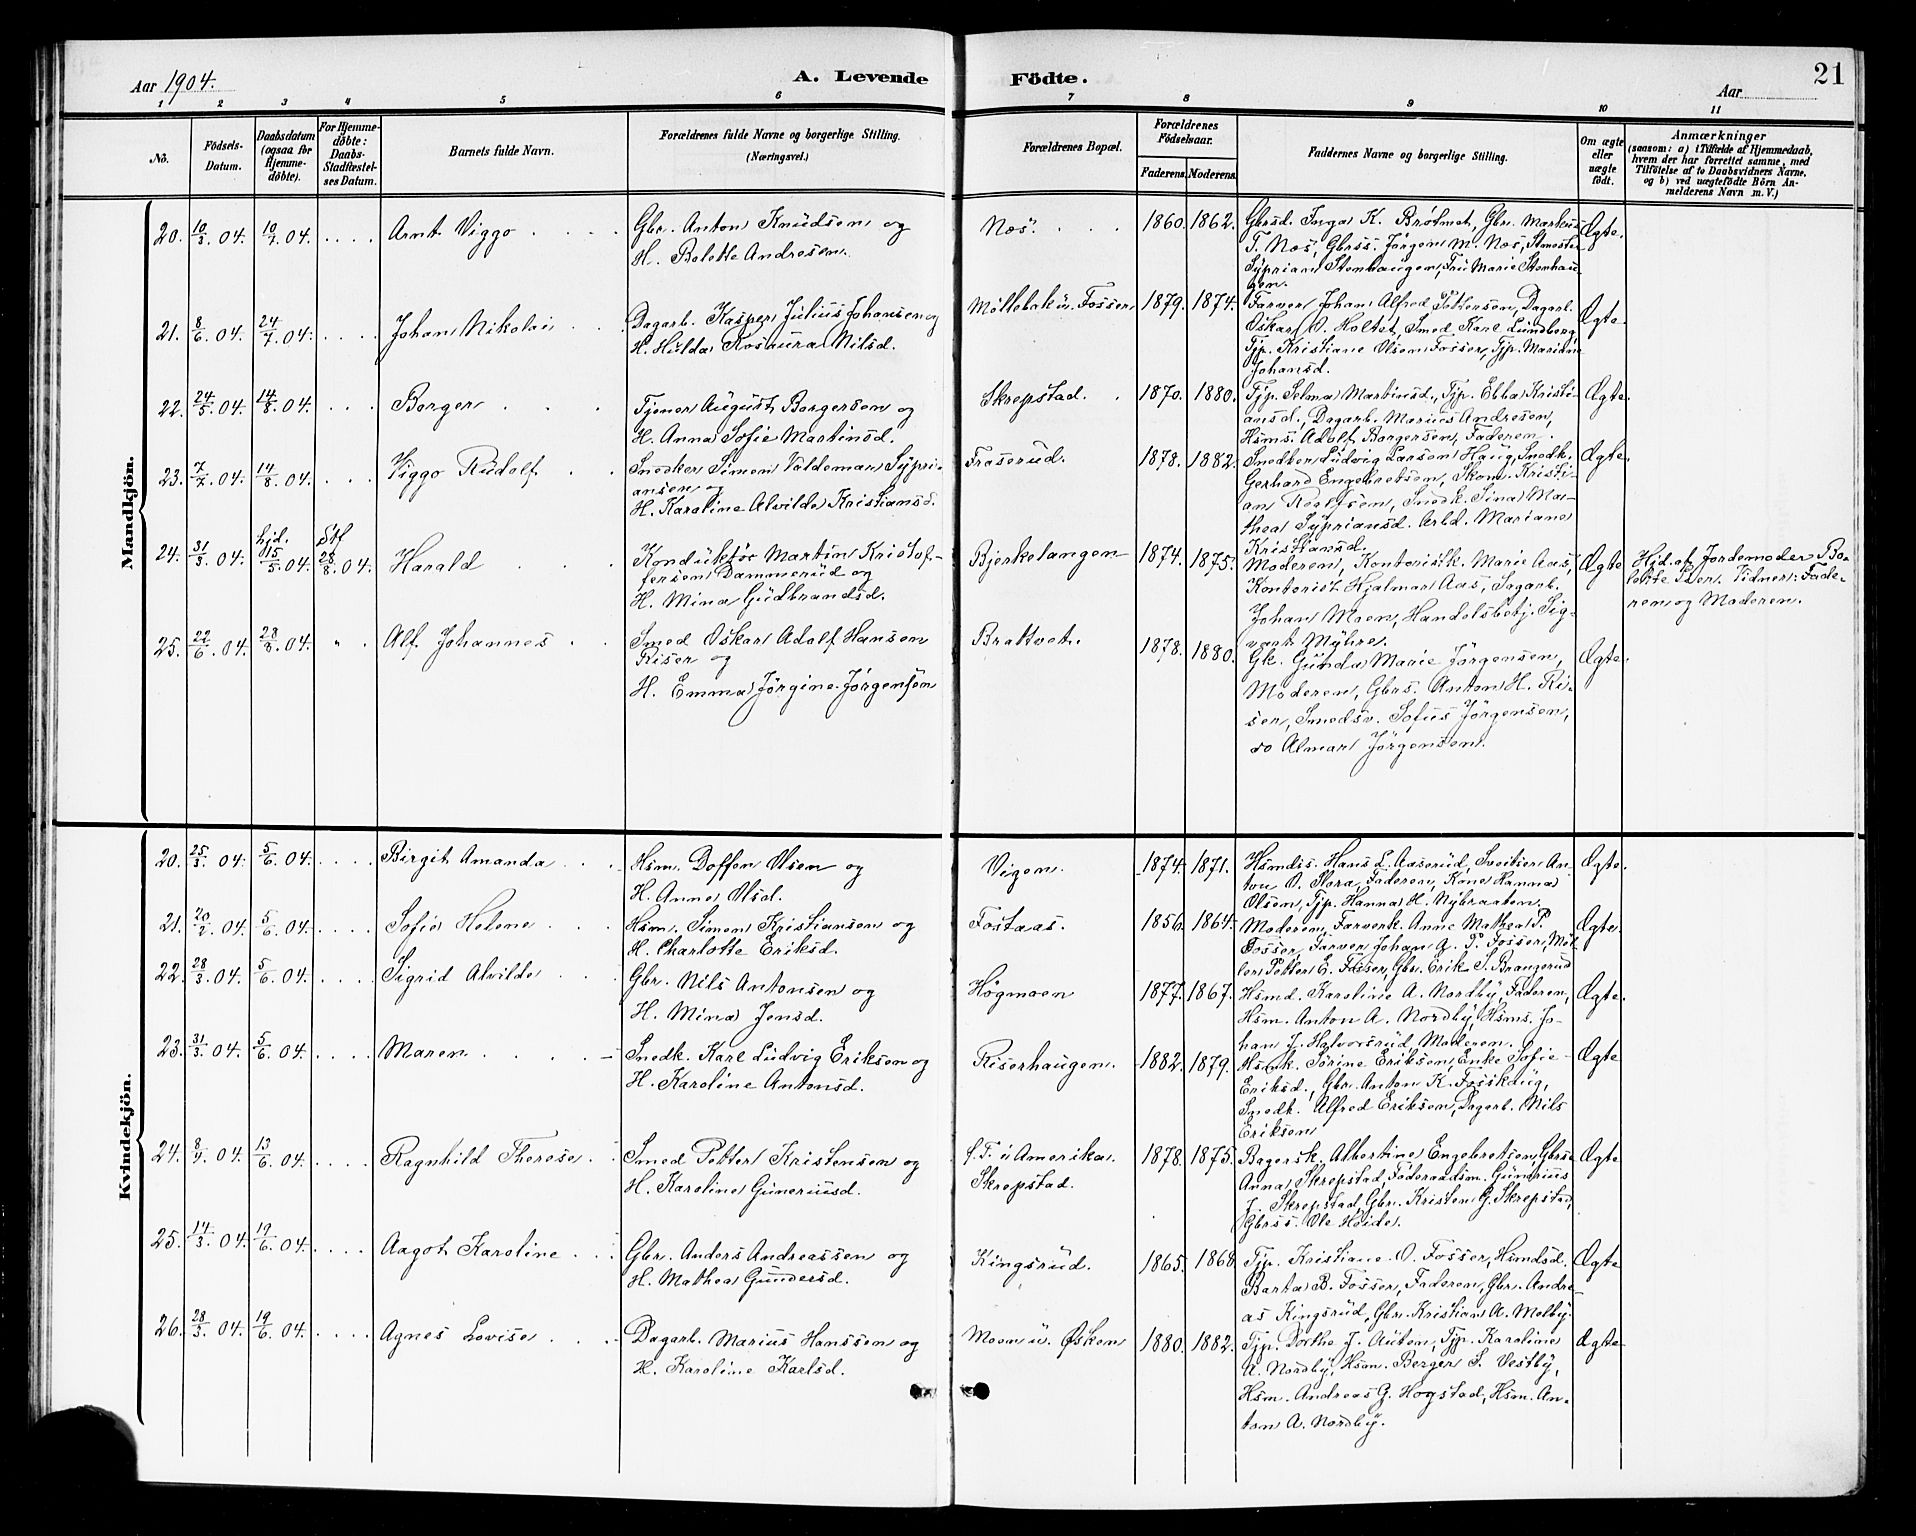 Aar 1904.
A. Levende
Födte.
Aar
21
1 2 3 4 5 6 7 8 9 10 11
No.
Födsels-
Datum.
Daabsdatum
(ogsaa for
Hjemme-
döbte).
For Hjemme-
döbte:
Daabs-
Stadfæstel-
ses Datum.
Barnets fulde Navn.
Forældrenes fulde Navne og borgerlige Stilling.
(Næringsvei.)
Forældrenes Bopæl.
Forældrenes
Födselsaar.
Faderens. Moderens.
Faddernes Navne og borgerlige Stilling.
Om ægte
eller
uægte
födt.
Anmærkninger
(saasom: a) i Tilfælde af Hjemmedaab,
hvem der har forrettet samme, med
Tilföielse af to Daabsvidners Navne,
og b) ved uægtefödte Börn An-
melderens Navn m. V.)
Mandkjön.
20. 10/3 04. 10/7 04. Arnt Viggo
Gbr. Anton Knudsen og
H. Bolette Andresen.
Næs.
1860. 1862.
Gbrsd. Inga K. Brøtmet, Gbr. Markus
T. Næs, Gbrss. Jörgen M. Næs, Stmester
Syprian Stenhaugen, Fru Marie Stenhau-
gen.
Ægte.
21. 8/6 04. 24/7 04. Johan Nikolai
Dagarb. Kasper Julius Johansen og
H. Hulda Rosaura Nilsd.
Møllebak u. Fosser
1879. 1874.
Farver Johan Alfred Pettersen, Dagarb.
Oskar O. Holtet, Smed Karl Lundberg,
Tjp. Kristiane Olsen Fosser, Tjp. Mariane
Johansd.
Ægte.
22. 24/5 04. 14/8 04. Borger
Tjener August Borgersen og
H. Anna Sofie Martinsd.
Skrepstad.
1870. 1880.
Tjp. Selma Martinsd., Tjp. Ebba Kristi-
ansd., Dagarb. Marius Andresen,
Hsms. Adolf Borgersen, Faderen.
Ægte.
23. 7/7 04. 14/8 04. Viggo Rudolf
Snedker Simen Valdemar Sypri-
ansen og
H. Karoline Alvilde Kristiansd.
Fraserud.
1878. 1882.
Snedker Ludvig Larsen Haug, Snedk.
Gerhard Engebretsen, Skom. Kristi-
an Roelfsen, Snedk. Sina Ma-
thea Syprians d. Arbd. Mariane
Kristiansd.
Ægte.
24. 31/3 04. Hjd. 15/5 04. Stf 28/8 04. Harald
Konduktør Martin Kristof-
fersen Dammerud og
H. Mina Gudbrandsd.
Bjerkelangen
1874. 1875.
Moderen, Kontoristk. Marie Aas,
Kontorist Hjalmar Aas, Sagarb.
Johan Moen, Handelsbetj. Sig-
vart Myhre.
Ægte
Hjd. af Jordemoder Bo-
lette Iver. Vidner: Fade-
ren og Moderen.
25. 22/6 04. 28/8 04. " Alf Johannes
Smed Oskar Adolf Hansen
Riser og
H. Emma Jörgine Jörgensen
Brattvet.
1878. 1880.
Gk. Gunda Marie Jörgensen,
Moderen, Gbrs. Anton H. Ri-
ser, Smedsv. Sofus Jörgensen,
do Almar Jörgensen.
Ægte.
Kvindekjön.
20. 25/3 04. 5/6 04. Birgit Amanda
Hsm. Doffen Olsen og
H. Anne Olsd.
Vigen.
1874. 1871.
Hsmdss. Hans L. Aaserud, Sveitser An-
ton O. Flora, Faderen, Kone Hanna
Olsen, Tjp. Hanna H. Nybraaten.
Ægte.
21. 20/2 04. 5/6 04. Sofie Helene
Hsm. Simen Kristiansen og
H. Charlotte Eriksd.
Fostaas.
1856. 1864.
Moderen, Farverk. Anne Mathea P.
Fosser, Farver Johan A. P. Fosser, Möl-
ler Petter E. Fosser, Gbr. Erik S. Brangerud
Ægte.
22. 28/3 04. 5/6 04. Sigrid Alvilde
Gbr. Nils Antonsen og
H. Mina Jensd.
Høgmoen
1877. 1867.
Hsmd. Karoline A. Nordby, Faderen,
Hsm. Anton A. Nordby, Hsms. Jo-
han J. Halvorsrud, Moderen.
Ægte.
23. 31/3 04. 5/6 04. Maren
Snedk. Karl Ludvig Eriksen og
H. Karoline Antonsd.
Riserhaugen.
1882. 1879.
Hsmk. Sörine Eriksen, Enke Sofie
Eriksd., Gbr. Anton K. Fosskaug,
Snedk. Alfred Eriksen, Dagarb. Nils
Eriksen
Ægte
24. 8/4 04. 13/6 04. Ragnhild Therese
Smed Petter Kristensen og
H. Karoline Guneriusd.
f. T. i Amerika.
Skrepstad.
1878. 1875.
Bagersk. Albertine Engebretsen, Gbrsd
Anna Skrepstad, Föderaadsm. Gunerius
J. Skrepstad, Gbr. Kristen G. Skrepstad,
Gbrss. Ole Heide.
Ægte
25. 14/3 04. 19/6 04. Aagot Karoline
Gbr. Anders Andreassen og
H. Mathea Gundersd.
Kingsrud.
1865. 1868.
Tjp. Kristiane O. Fosser, Hsmdsd.
Barta B. Fosser, Faderen, Gbr. Andre-
as Kingsrud, Gbr. Kristian A. Melby.
Ægte
26. 28/3 04. 19/6 04. Agnes Lovise
Dagarb. Marius Hanssen og
H. Karoline Karlsd.
Moen u. Øsken
1880. 1882.
Tjp. Dorthe J. Auten, Tjp. Karoline
A. Nordby, Hsm. Berger S. Vestby,
Hsm. Andreas G. Hogstad, Hsm. An-
ton A. Nordby.
Ægte